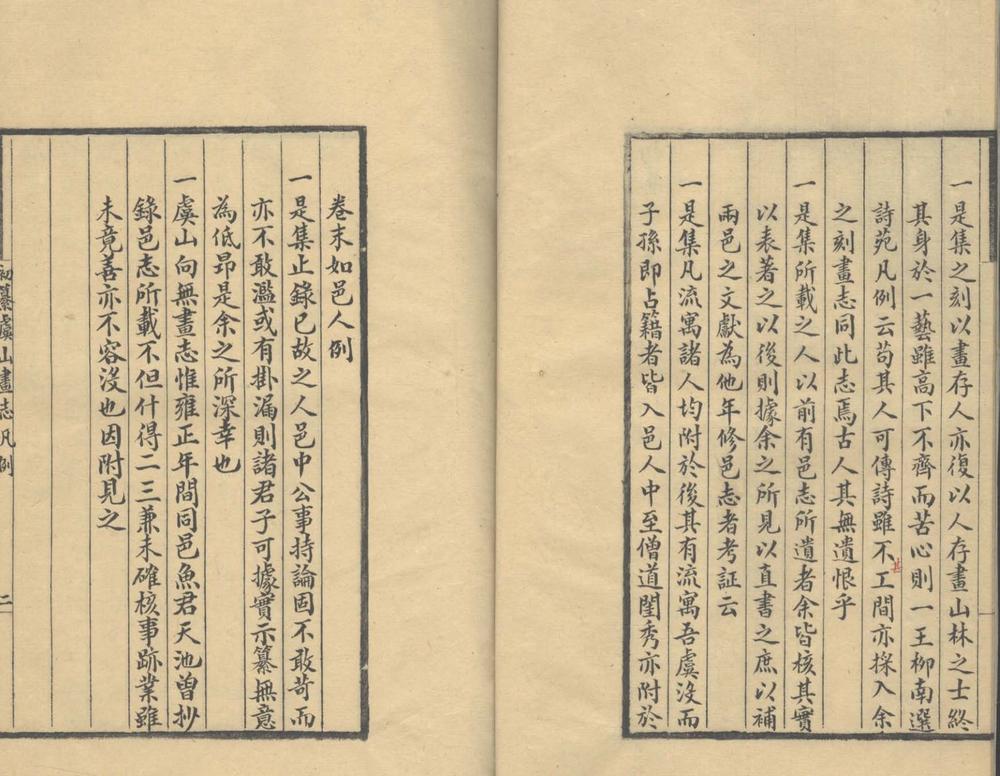 一是集之刻以畫存人亦復以人存畫山林之士終
其身於一藝雖高下不齊而苦心則一王柳南選
詩苑凡例云苟其人可傳詩雖不甚工間亦採入余
之刻畫志同此志焉古人其無遺恨乎
一是集所載之人以前有邑志所遺者余皆核其實
以表著之以後則據余之所見以直書之庶以補
兩邑之文獻為他年修邑志者考証云
一是集凡流寓諸人均附於後其有流寓吾虞沒而
子孫即占籍者皆入邑人中至僧道閨秀亦附於
卷末如邑人例
一是集止錄已故之人邑中公事持論固不敢苛而
亦不敢濫或有掛漏則諸君子可據實示纂無意
為低昂是余之所深幸也
一虞山向無畫志惟雍正年間同邑魚君天池曾抄
錄邑志所載不但什得二三兼未確核事跡業雖
未竟善亦不容沒也因附見之
初纂虞山畫志凡例
二